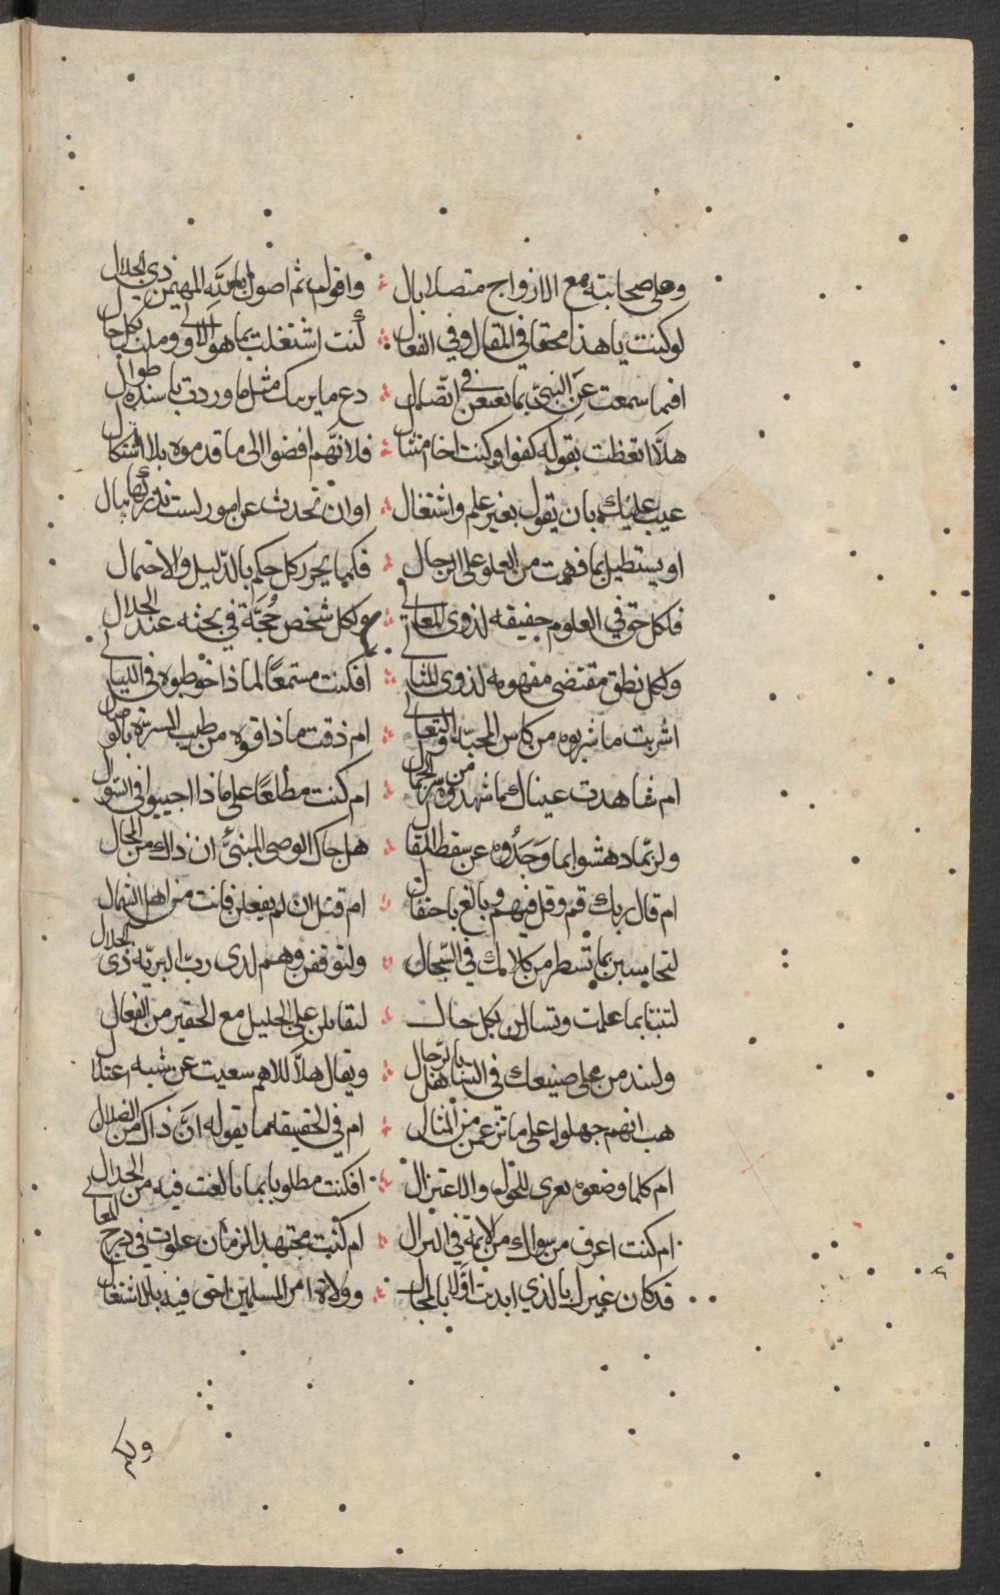 وعلى صحابته مع الازواج متصلا بال ؞ واقول ثم اصول بالله المهيمن ذى الجلال
لو كنت يا هذا محقا فى المقال وفى الفعال ؞ لكنت اشتغلت بما هو الاولى وملت بكل حال
افما سمعت عن النبى بما نعنعن فى اتصال ؞ دع ما يريبك مثل ما وردت باسنده طوال
هلا اتعظت بقوله كفوا وكنت اخا امتثال ؞ فلانهم افضوا الى ما قدموه بلا اشتكال
عيب عليك بان يقول بغير علم واشتغال ؞ او ان تحدث عن امور لست تدركها ببال
او يستطيل بما فهمت من العلو على الرجال ؞ فكما يحرر كل حكم بالدليل والاحتمال
فلكل حق فى العلوم حقيقه لذوى المعالى ؞ ولكل شخص حُجَّة فى بحثه عند الجدال
ولكل نطق مقتضى مفهومه لذوى المثالى ؞ افكنت مستمعًا لما ذا خوطبوه فى الليالى
اشربت ما شربوه من كاس المحبة والتعالى ؞ ام ذقت ما ذاقوه من طيب المسرة بالوصال
ام شاهدت عيناك ما شهدوه من سر الجمال ؞ ام كنت مطلعًا على ما ذا اجيبوا فى السوال
ولربما دهشوا بما وَجَدُوه عن سقط المقال ؞ هل جاك الوصى المنبئ ان ذاك من المحال
ام قال ربك قم وقل فيهم وبالغ باحتفال ؞ ام قتل ان لم يفعلن فانت من اهل الشمال
لتحاسبن بما تسطر من كلامك فى السجال ؞ ولتوقفن وهم لدى رب البريه ذى الجلال
لتنبا بما عملت وتسالن بكل حال ؞ لتقابلن على الجليل مع الحقير من الفعال
ولتندمن على صنيعك فى التساهل بالرجال ؞ ويقال هلا للاهم سعيت عن شبه اعتدال
هب انهم جهلوا على ما تزعمن من المثال ؞ ام فى الحقيقه ما يقوله انَّ ذاك من الضلال
ام كلما وضعوه يعزى للتحول والاعتزال ؞ افكنت مطلوبا بما بالغت فيه من الجدال
ام كنت اعرف من سواك من الائمة فى النزال ؞ ام كنت مجتهد الزمان علوت فى درج المعالى
قد كان غيرك بالذى ابدت اولا بالمجال ؞ وولاة امر المسلمين احق فيه بالاشتغال